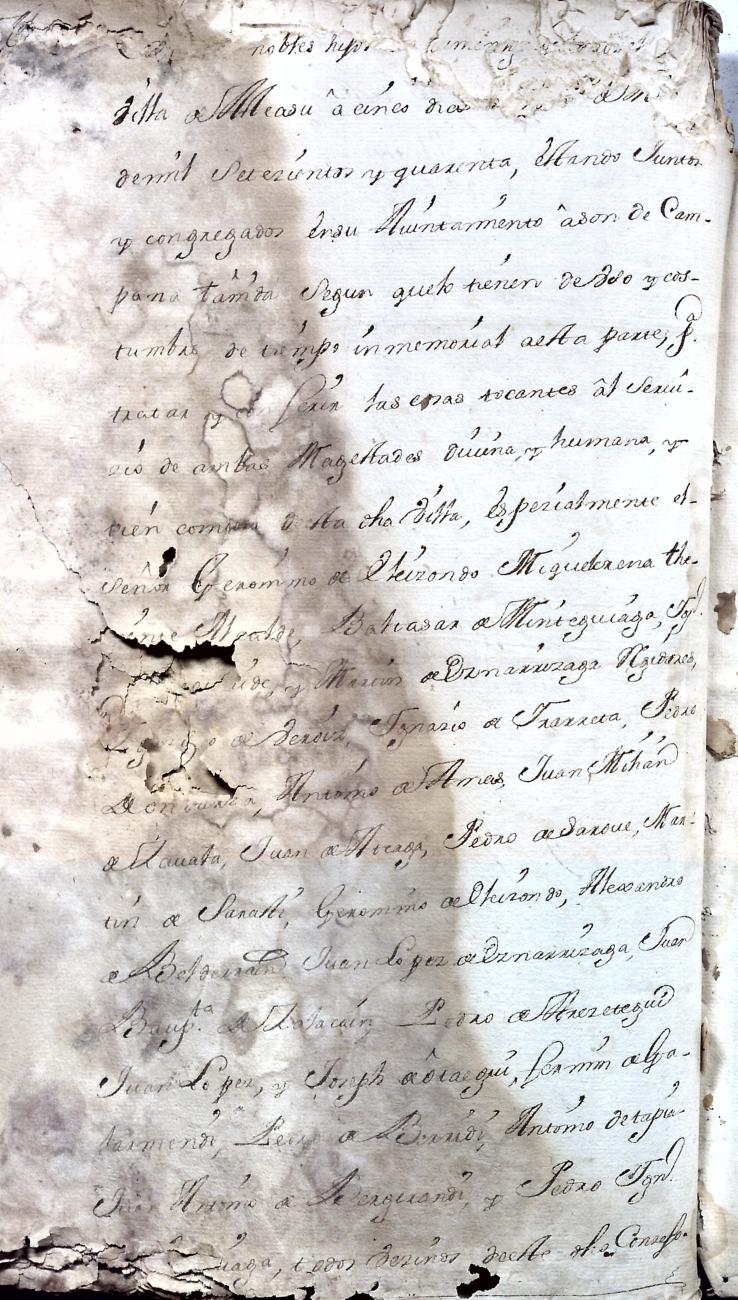 nobles hijos
Villa de Alcasu â cinco dias
demil Setezientos y quarenta, èstando Juntos
y congregados ensu Aiuntamiento âson de Cam-
pana tamda Segun quelo tienen de Vso y cos-
tumbre de tiempo inmemorial aesta parte, p.ª
tratar y conferir las cosas tocantes âl Serui-
zio de ambas Magestades diuina, y humana, y
vien comun desta dha Villa, èspezialmente el
señor Geronimo de Eleizondo Miquelerena the-
niente Alcalde, Baltasar de Minteguiaga, Ign.º
y Martin de Oznarrizaga Regidores,
de Veroiz, Ignazio de Yrarreta, Pedro
Antonio de Ames, Juan Mihan
de Zauala, Juan de Ateaga, Pedro de Saroue, Mar-
tin de Sarasti, Geronimo de Eleizondo, Alexandro
de Belderrain, Juan Lopez de Oznarrizaga, Juan
Baup.ta de Zatacain Pedro de Arezetegui
Juan Lopez, y Joseph de Otaegui, fermin de Ga-
larmendi, Pedro de Berridi, Antonio de tapia
Juan Antonio de Berguiandi, y Pedro Ign.º
todos vezinos deeste dho Consejo